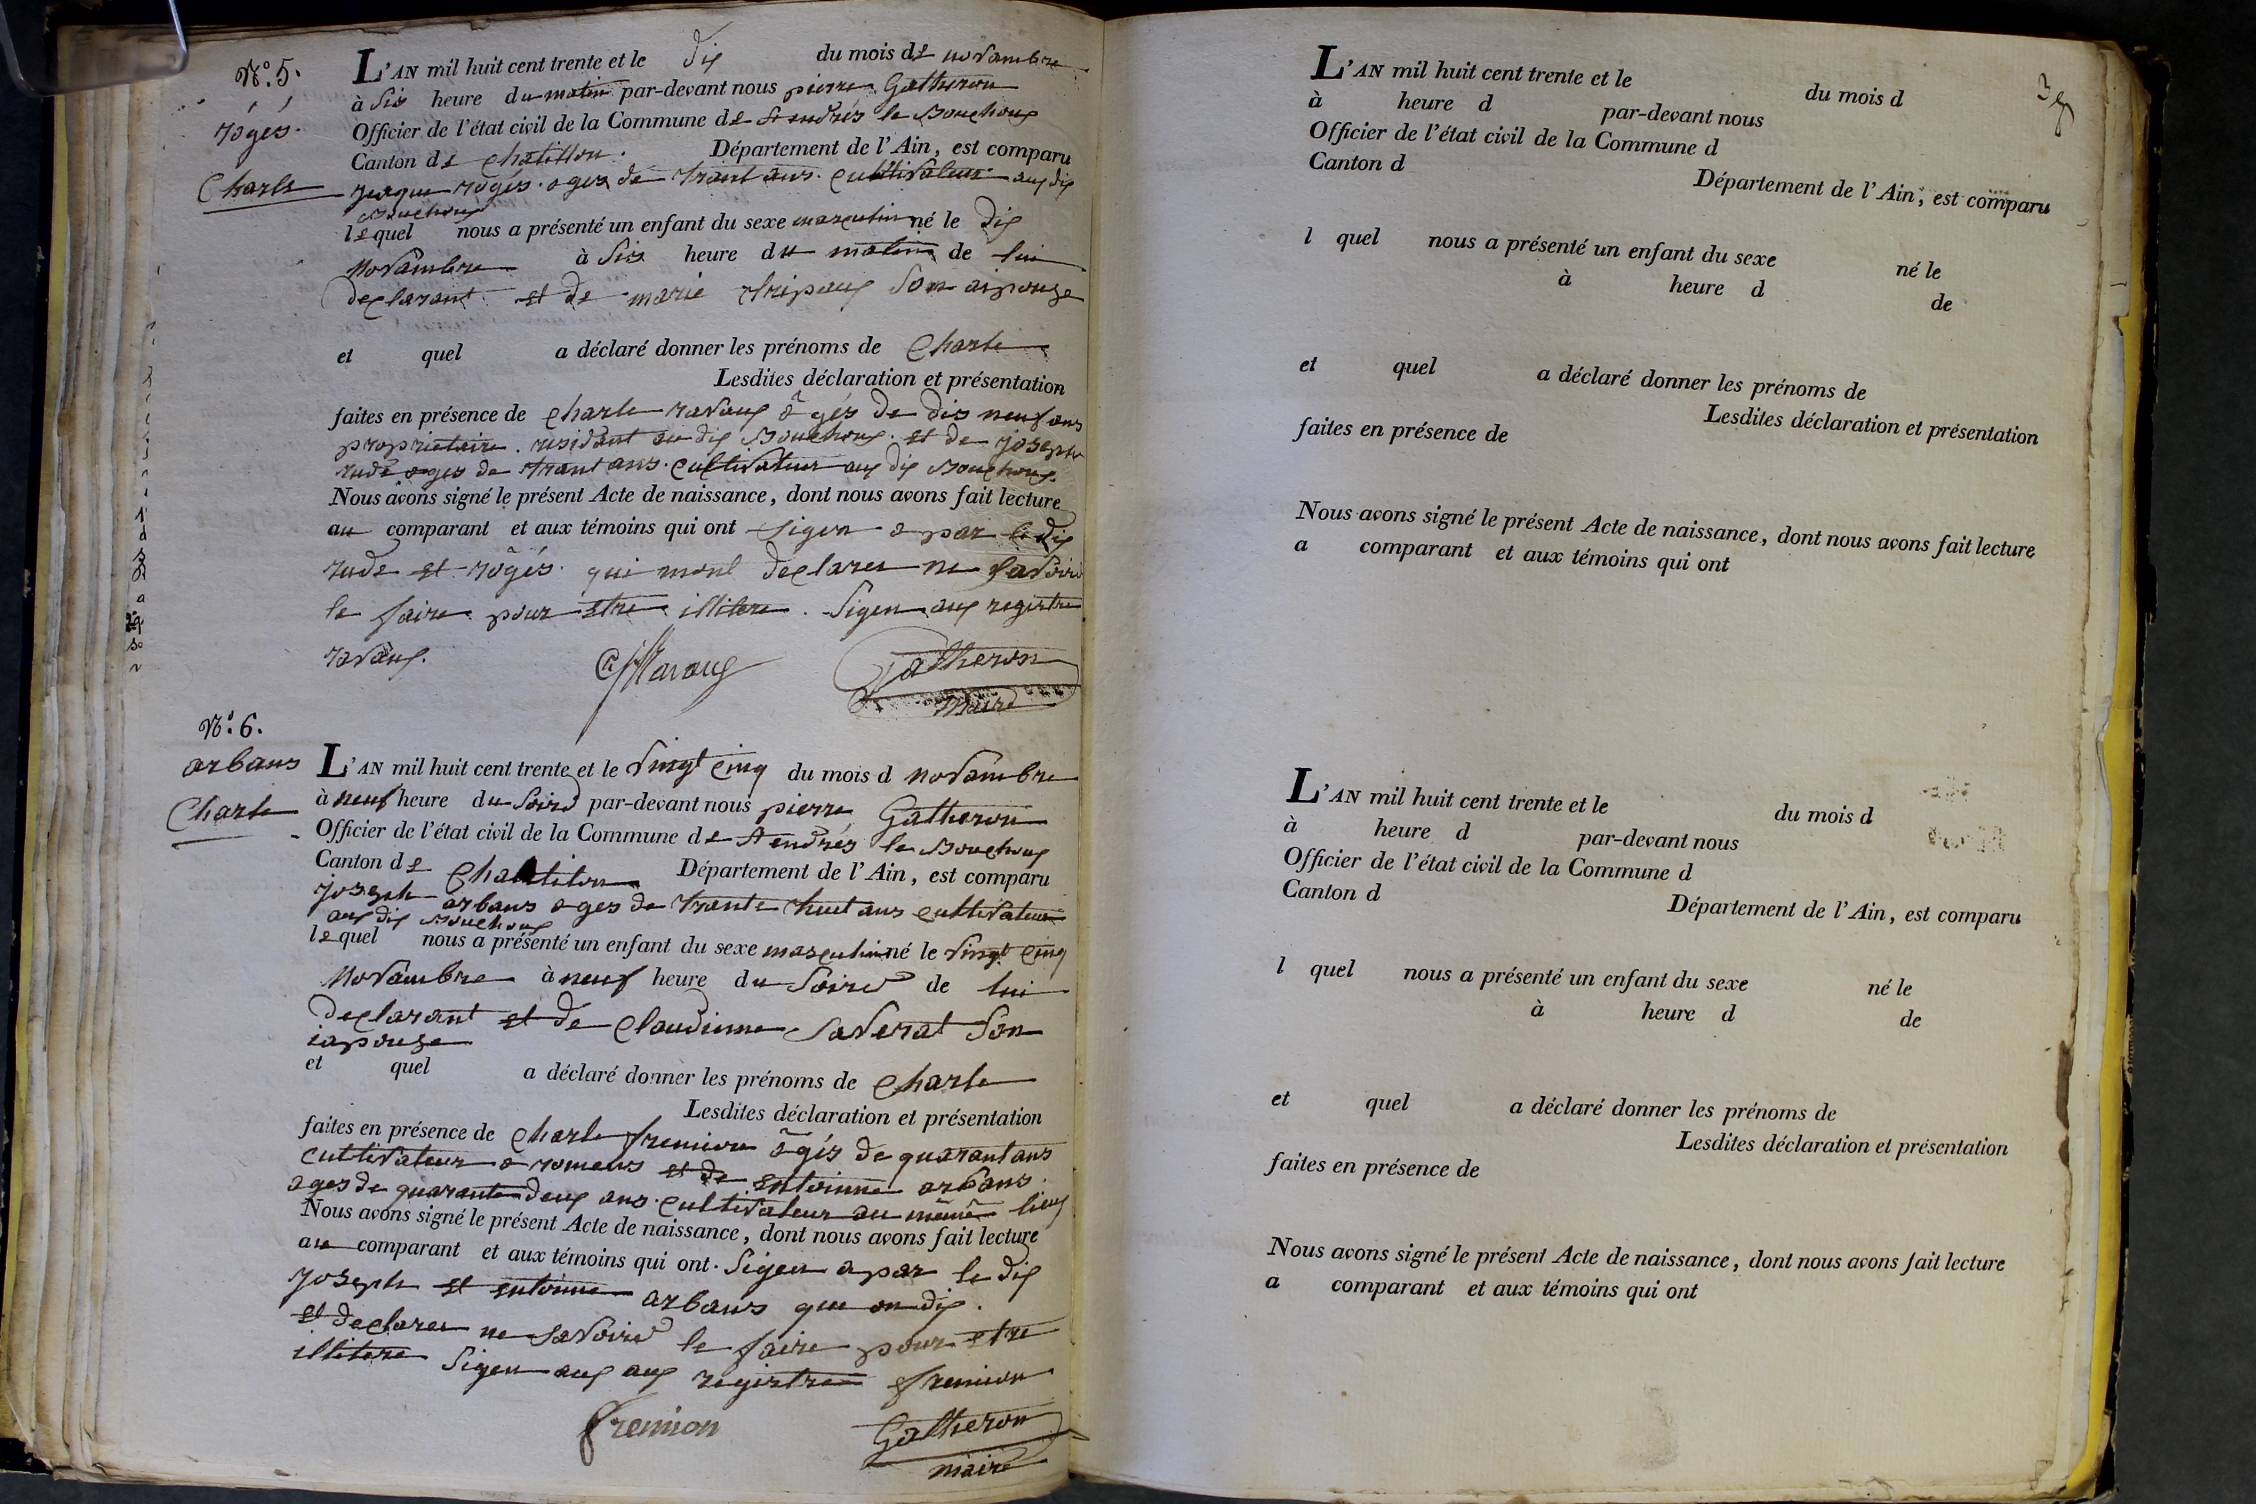 N.º 5.
rogés.
Charle
L'AN mil huit cent trente et le dix du mois de novambre
à sis heure du matin par-devant nous pierre Gatheron
Officier de l'état civil de la Commune de st endrés le Bouchoux
Canton de Chatillon. Département de l'Ain, est comparu
jacque rogés. ages de trant ans. cultivateur aux dix
Bouchoux
lequel nous a présenté un enfant du sexe masculin né le dix
Novambre à sis heure du matin de lui
declarant et de marie tripoux son aipouze
et quel a déclaré donner les prénoms de Charle
Lesdites déclaration et présentation
faites en présence de charle ravaux âgés de dis neuf ans
proprietaire. residant au dix Bouchoux. et de joseph
rude ages de trant ans. cultivateur aux dix Bouchoux.
Nous avons signé le présent Acte de naissance, dont nous avons fait lecture
au comparant et aux témoins qui ont sigen a par le dix
rude et rogés. qui mont declarer ne savoir
le faire pour etre illitere. sigen aux registre
ravaux.
Ch Ravaux Gatheron
Maire
N.º 6.
arbans
Charle
L'AN mil huit cent trente et le vingt cinq du mois d novambre
à neuf heure du soire par-devant nous pierre Gatheron
Officier de l'état civil de la Commune de st endrés le Bouchoux
Canton de Chatiton Département de l'Ain, est comparu
joseph arbans ages de trante huit ans cultivateur
aux dix Bouchoux
lequel nous a présenté un enfant du sexe masculin né le vingt cinq
Novambre à neuf heure du soire de lui
declarant et de claudinne saverat son
iapouze
et quel a déclaré donner les prénoms de charle
Lesdites déclaration et présentation
faites en présence de charle fremion âgés de quarant ans
cultivateur a romans et de entoinne arbans.
ages de quarante deux ans. cultivateur au même lieux
Nous avons signé le présent Acte de naissance, dont nous avons fait lecture
au comparant et aux témoins qui ont. sigen apar le dix
joseph et entoinne arbans que on dix.
et declarer ne savoire le faire pour etre
illitere sigen aux aux registre fremion
fremion Gatheron
maire
38
L'AN mil huit cent trente et le du mois d
à heure d par-devant nous
Officier de l'état civil de la Commune d
Canton d Département de l'Ain, est comparu
l quel nous a présenté un enfant du sexe né le
à heure d de
et quel a déclaré donner les prénoms de
Lesdites déclaration et présentation
faites en présence de
Nous avons signé le présent Acte de naissance, dont nous avons fait lecture
a comparant et aux témoins qui ont
L'AN mil huit cent trente et le du mois d
à heure d par-devant nous
Officier de l'état civil de la Commune d
Canton d Département de l'Ain, est comparu
l quel nous a présenté un enfant du sexe né le
à heure d de
et quel a déclaré donner les prénoms de
Lesdites déclaration et présentation
faites en présence de
Nous avons signé le présent Acte de naissance, dont nous avons fait lecture
a comparant et aux témoins qui ont